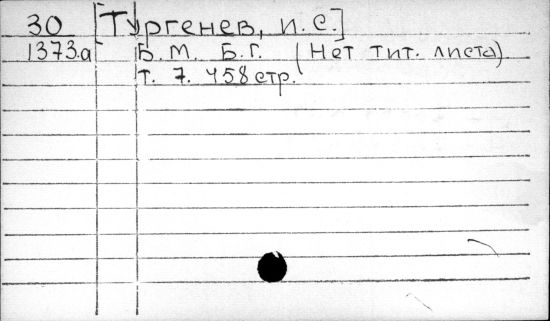 30 [Тургенев, И. С.]
1373.а Б. М. Б. Г. (Нет тит. листа).
т. 7. 458 стр.